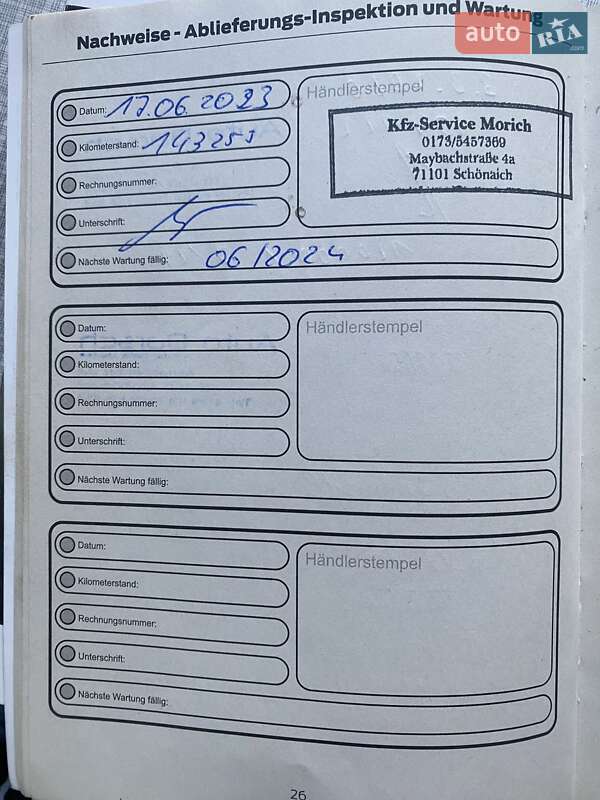 Nachweise - Ablieferungs-Inspektion und Wartung
auto RIA.com
Datum: 17.06.2023
Händlerstempel
Kfz-Service Morich
0173/5457369
Maybachstraße 4a
71101 Schönaich
Kilometerstand: 143255
Rechnungsnummer:
Unterschrift:
Nächste Wartung fällig: 06/2024
Datum:
Händlerstempel
Kilometerstand:
Rechnungsnummer:
Unterschrift:
Nächste Wartung fällig:
Datum:
Händlerstempel
Kilometerstand:
Rechnungsnummer:
Unterschrift:
Nächste Wartung fällig:
26